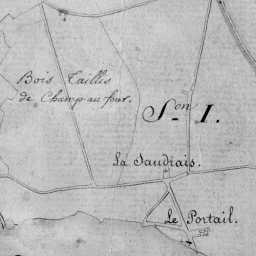 Bois Taillis
de Champ au four.
Son I.
La Saudrais.
Le Portail.